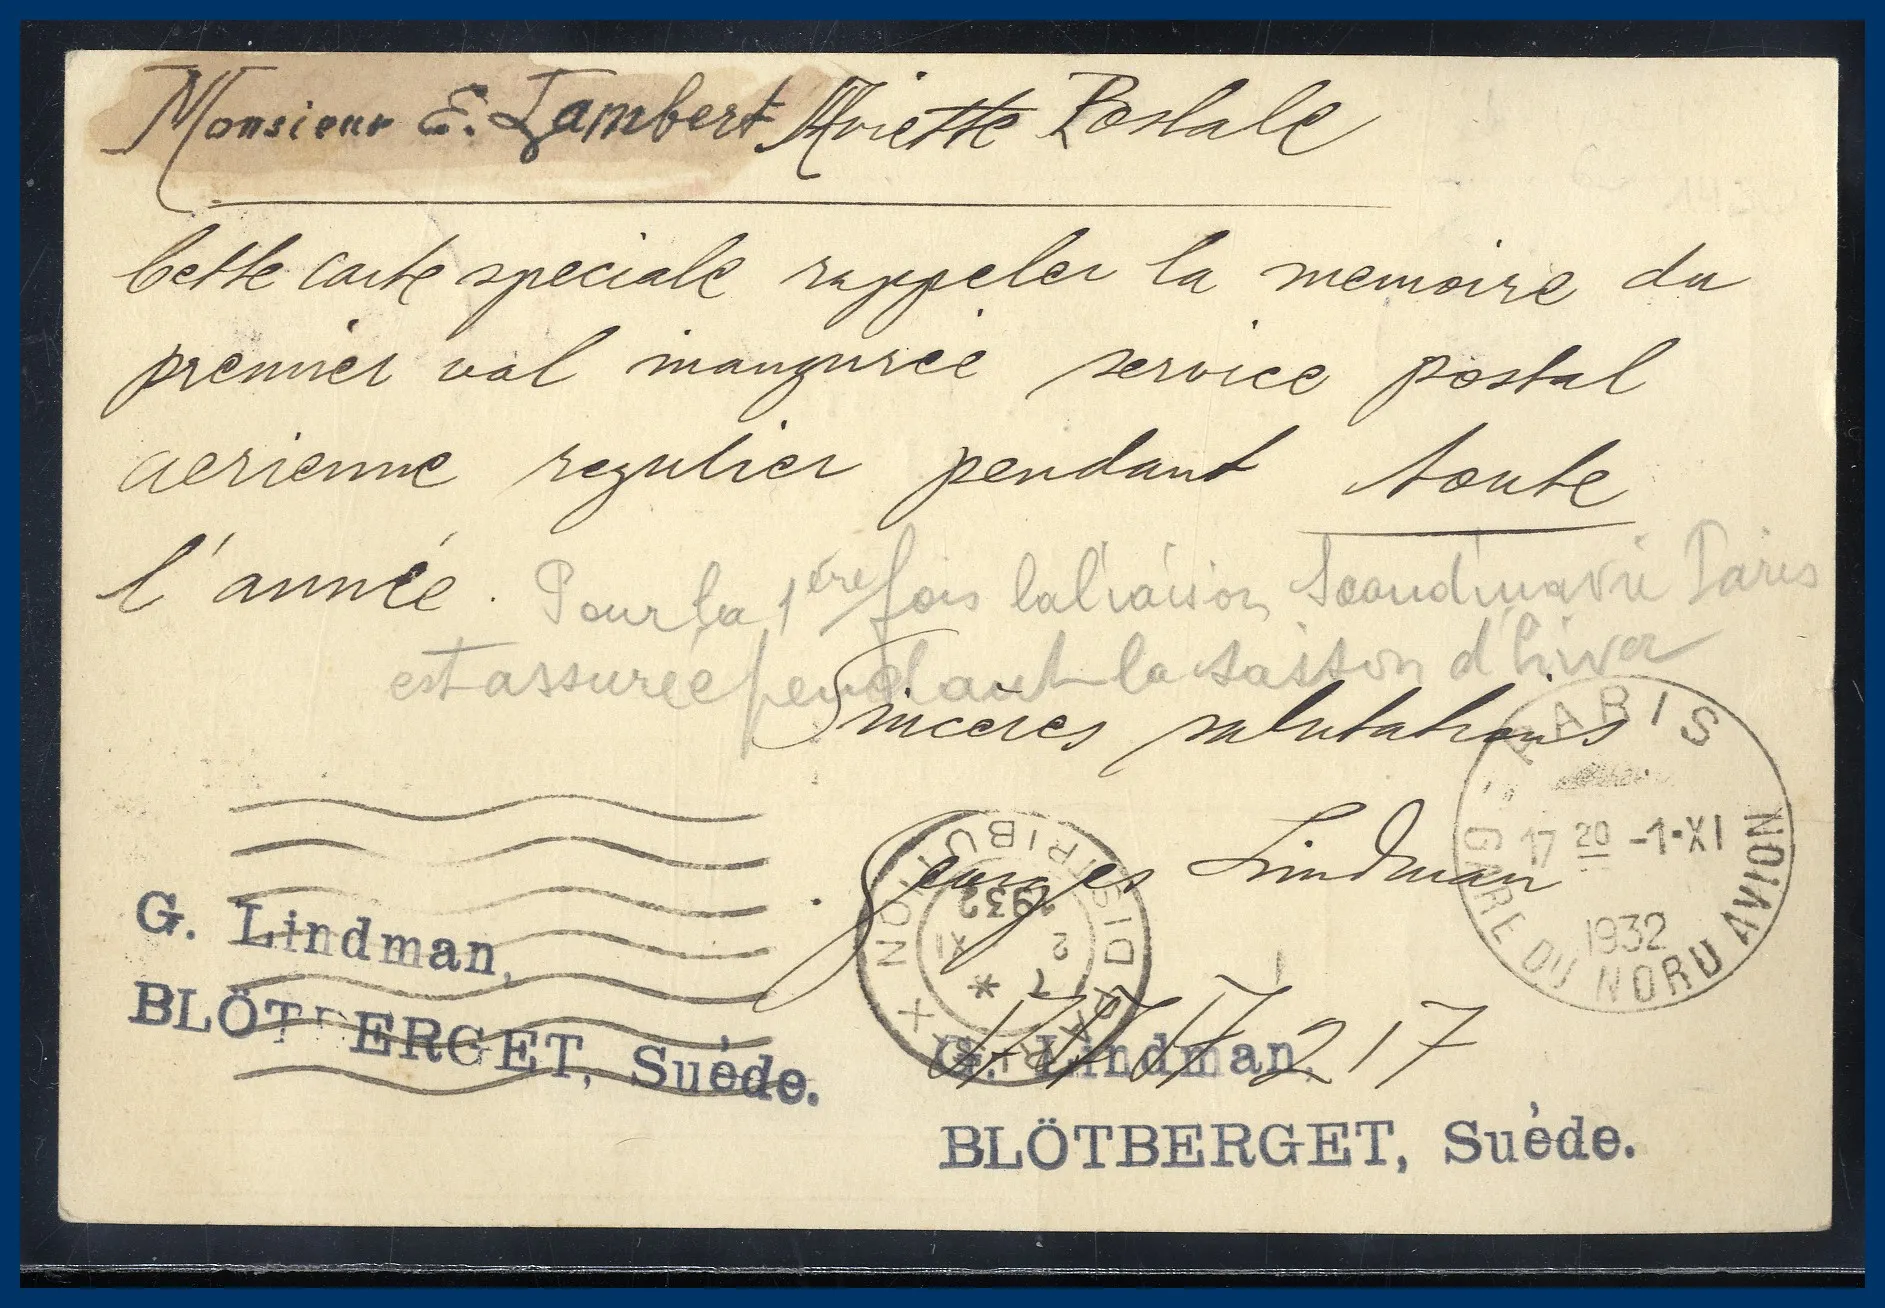 Monsieur E. Lambert Postale
Cette carte speciale rappeler la memoire du
premier vol inaugurée service postal
aerienne regulier pendant toute
l'année. Pour la 1ère fois la liaison Scandinavie Paris
est assurée pendant la saison d'hiver
Sinceres salutations
Georges Lindman
PARIS
17 20 -1·XI
1932
GARE DU NORD AVION
PARIS X DISTRIBUTION
7 *
2 XI
1932
217
G. Lindman,
BLÖTBERGET, Suéde.
G. Lindman,
BLÖTBERGET, Suéde.